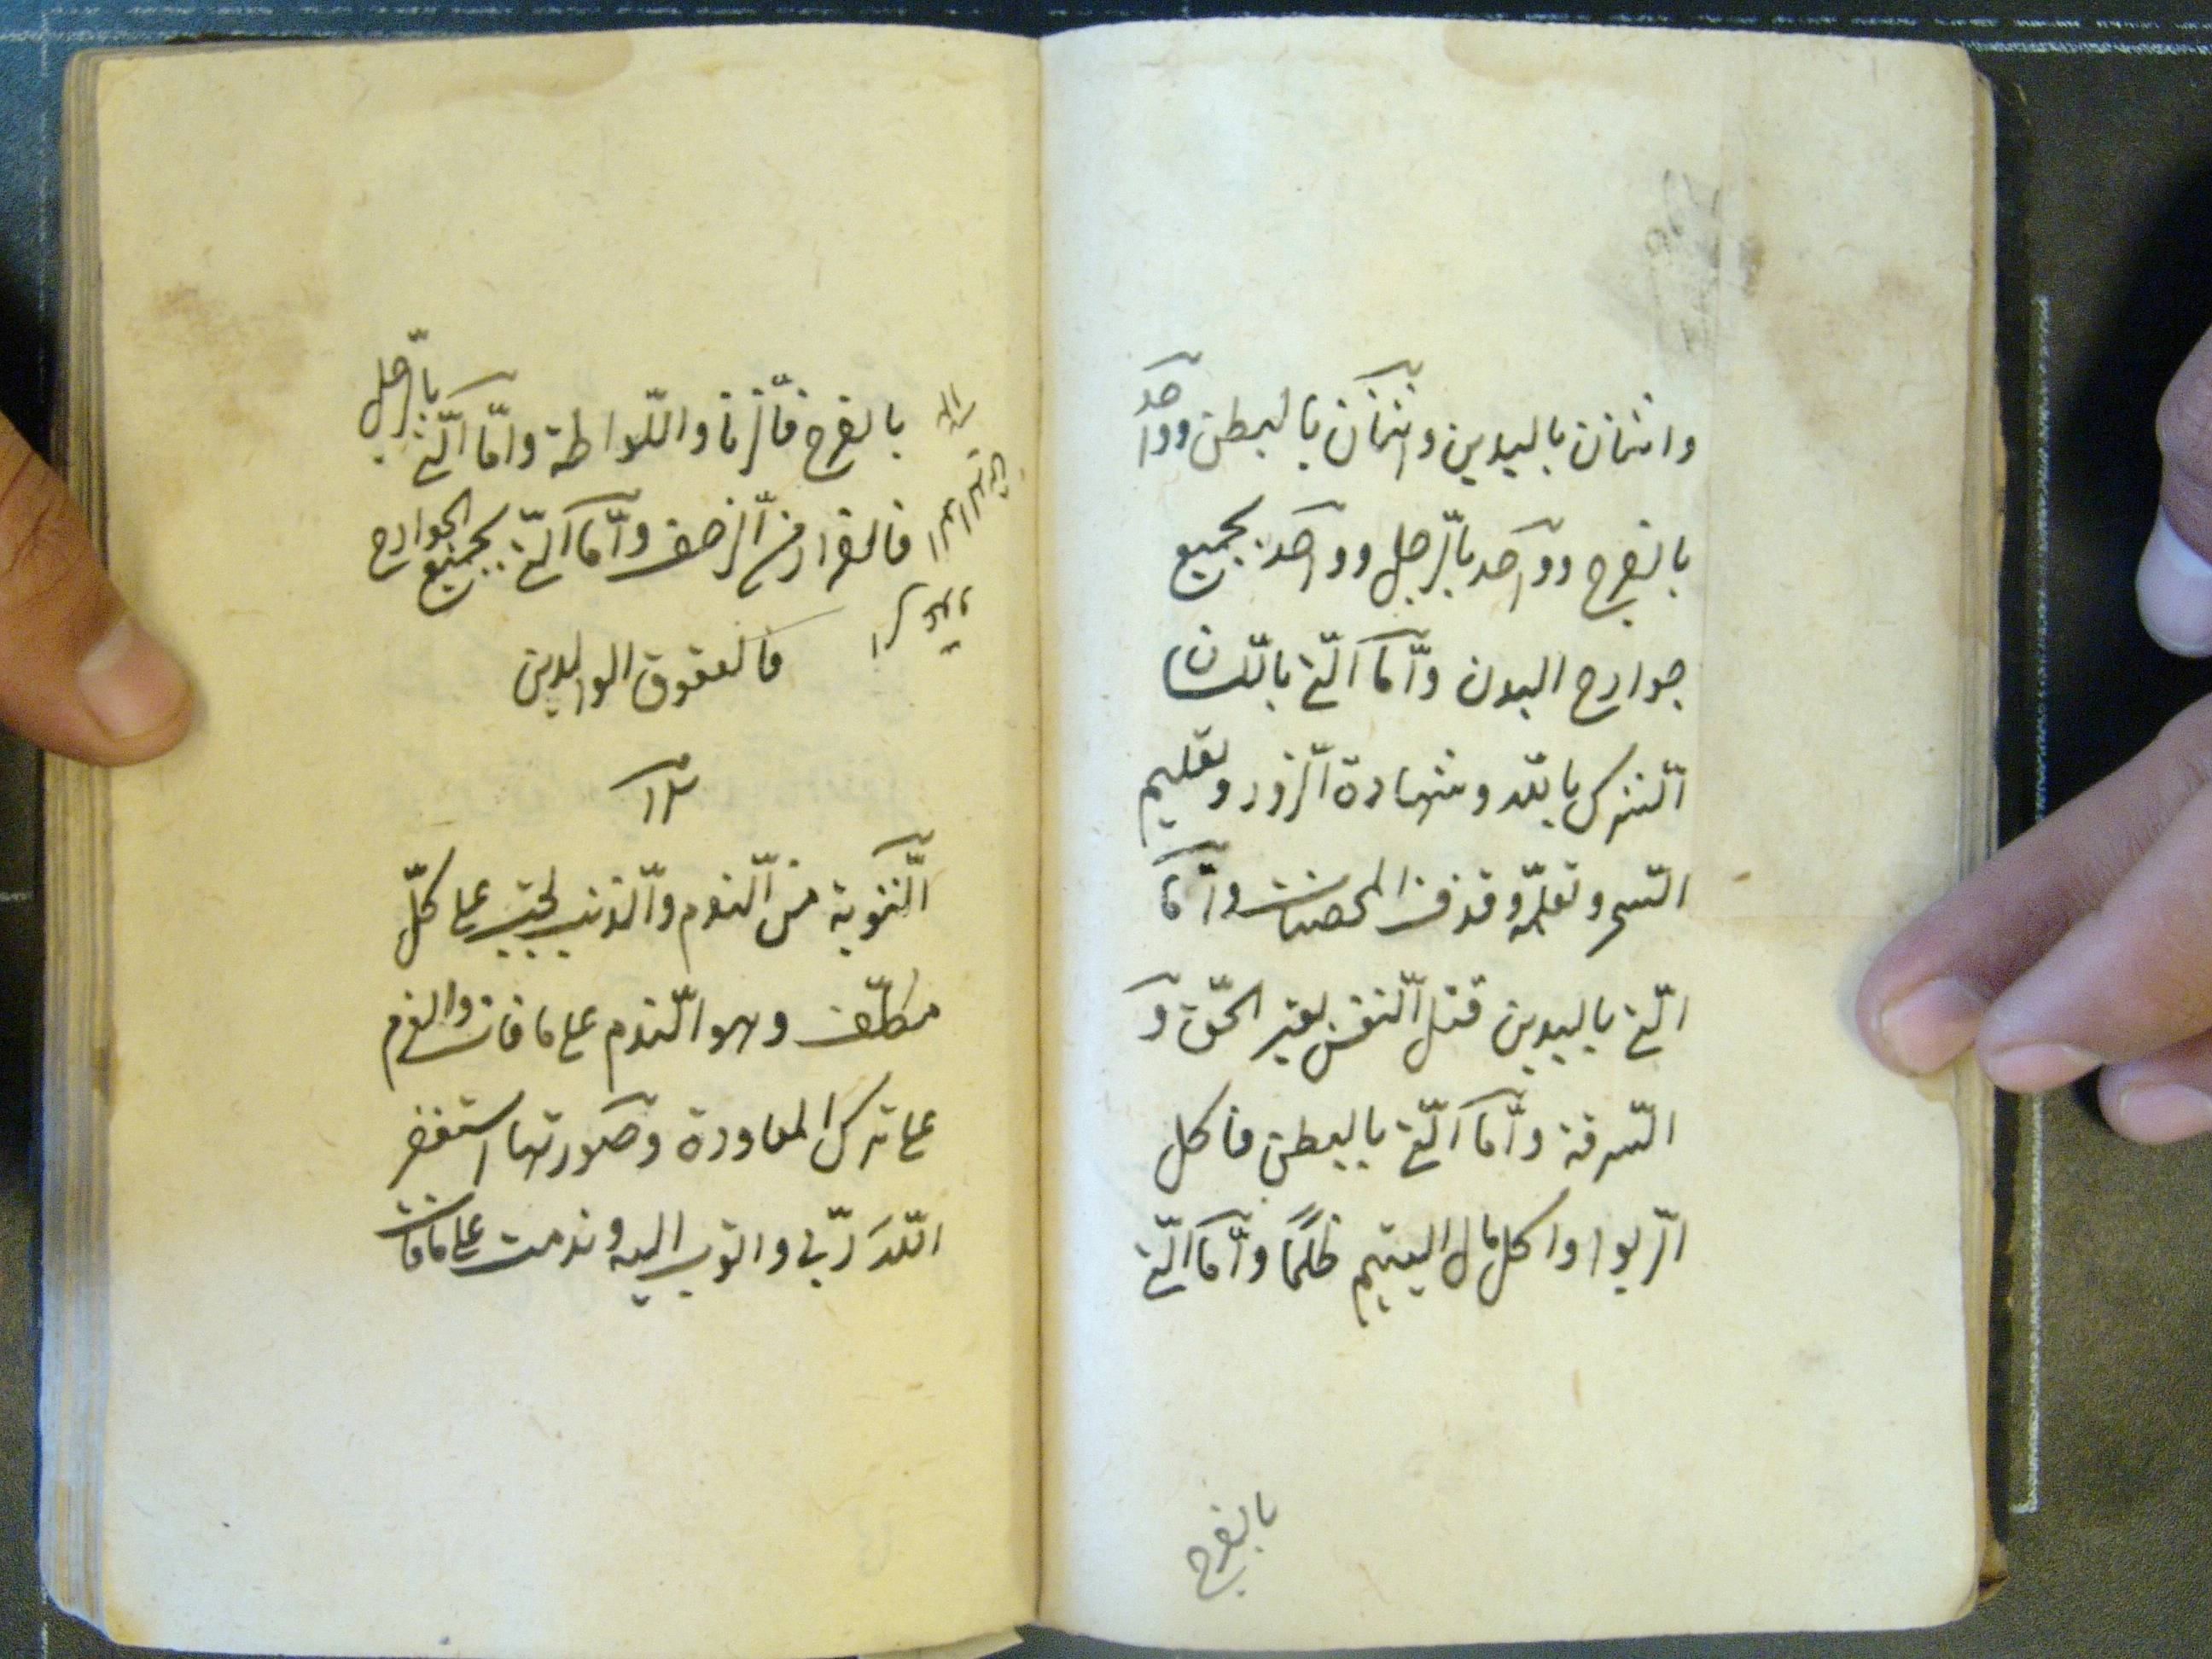 واثنان باليدين واثنان بالبطن وواحد
بالفرج وواحد بالرّجل وواحد بجميع
جوارح البدن وامّا الّتي باللّسان
الشّرك بالله وشهادة الزّور وتعليم
السّحر وتعلّمه وقذف المحصنات وامّا
الّتي باليدين قتل النّفس بغير الحقّ و
السّرقة وامّا الّتي بالبطن فاكل
الرّبوا واكل مال اليتيم ظلمًا وامّا الّتي
بالفرج
بالفرج فالزّنا واللّواطة وامّا الّتي بالرّجل
فالفرار من الزحف وامّا الّتي بجميع الجوارح
فالعقوق الوالدين
التّوبة من النّدم والذّنب يجب على كلّ
مكلّف وهو النّدم على ما فات والعزم
على ترك المعاودة وصورتها استغفر
اللّه ربّي واتوب اليه وندمت على ما فات